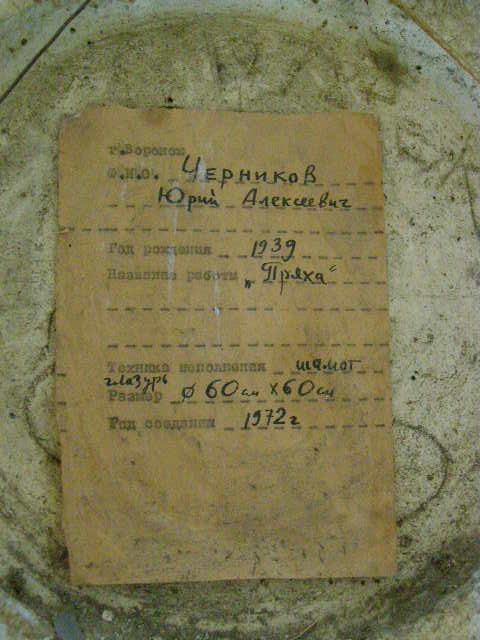 г. Воронеж
Ф.И.О. Черников
Юрий Алексеевич
Год рождения 1939
Название работы "Пряха"
Техника исполнения шамот
глазурь
Размер ø 60см х 60см
Год создания 1972г